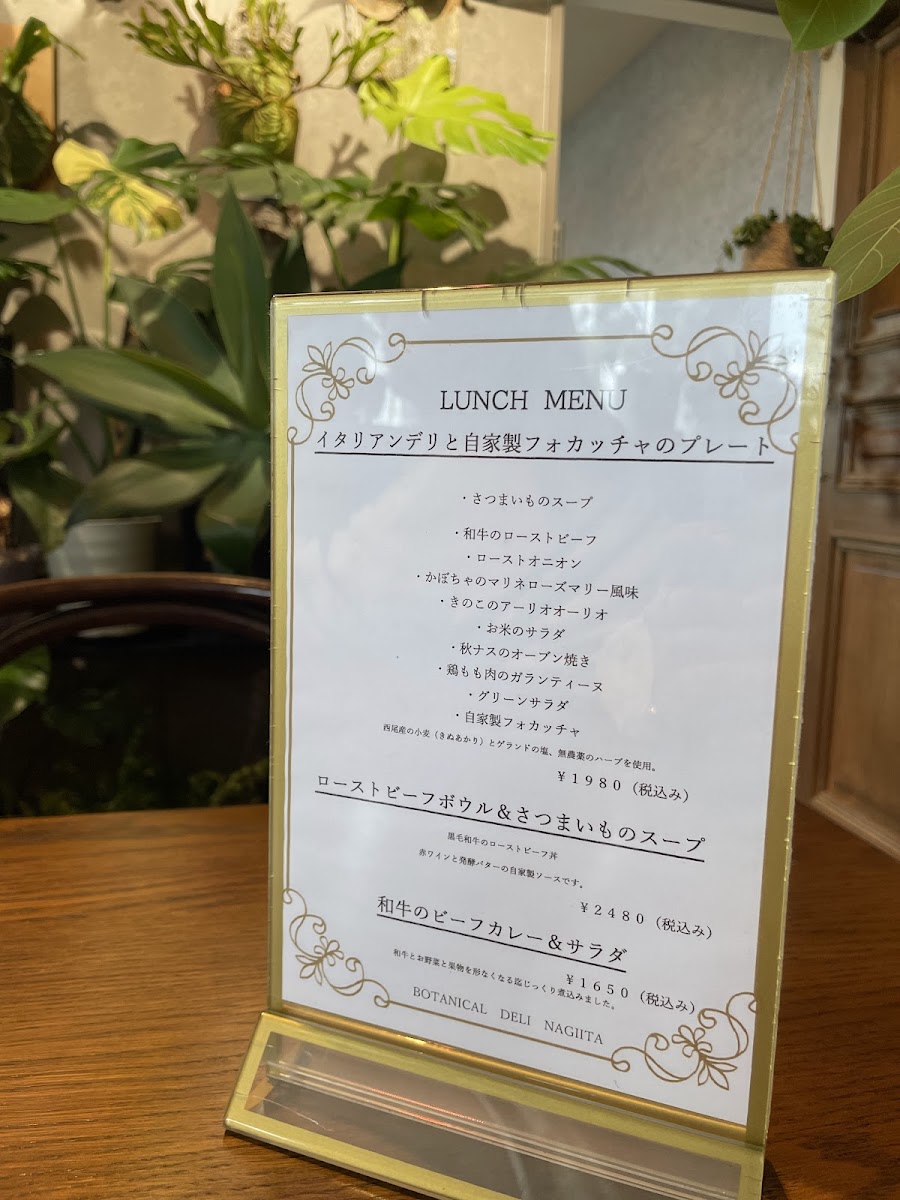 LUNCH MENU
イタリアンデリと自家製フォカッチャのプレート
・さつまいものスープ
・和牛のローストビーフ
・ローストオニオン
・かぼちゃのマリネローズマリー風味
・きのこのアーリオオーリオ
・お米のサラダ
・秋ナスのオーブン焼き
・鶏もも肉のガランティーヌ
・グリーンサラダ
・自家製フォカッチャ
西尾産の小麦（きぬあかり）とゲランドの塩、無農薬のハーブを使用。
￥１９８０（税込み）
ローストビーフボウル＆さつまいものスープ
黒毛和牛のローストビーフ丼
赤ワインと発酵バターの自家製ソースです。
￥２４８０（税込み）
和牛のビーフカレー＆サラダ
和牛とお野菜と果物を形なくなる迄じっくり煮込みました。
￥１６５０（税込み）
BOTANICAL DELI NAGIITA